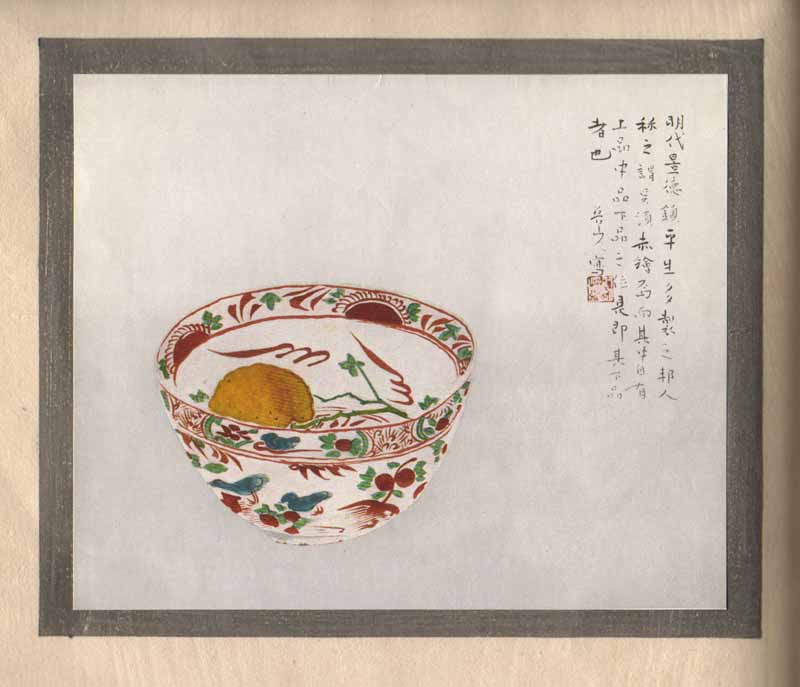 明代景德鎮平生多製之邦人
称之謂呉須赤繪為而其中自有
上品中品下品之位是即其下品
者也
岳文寫